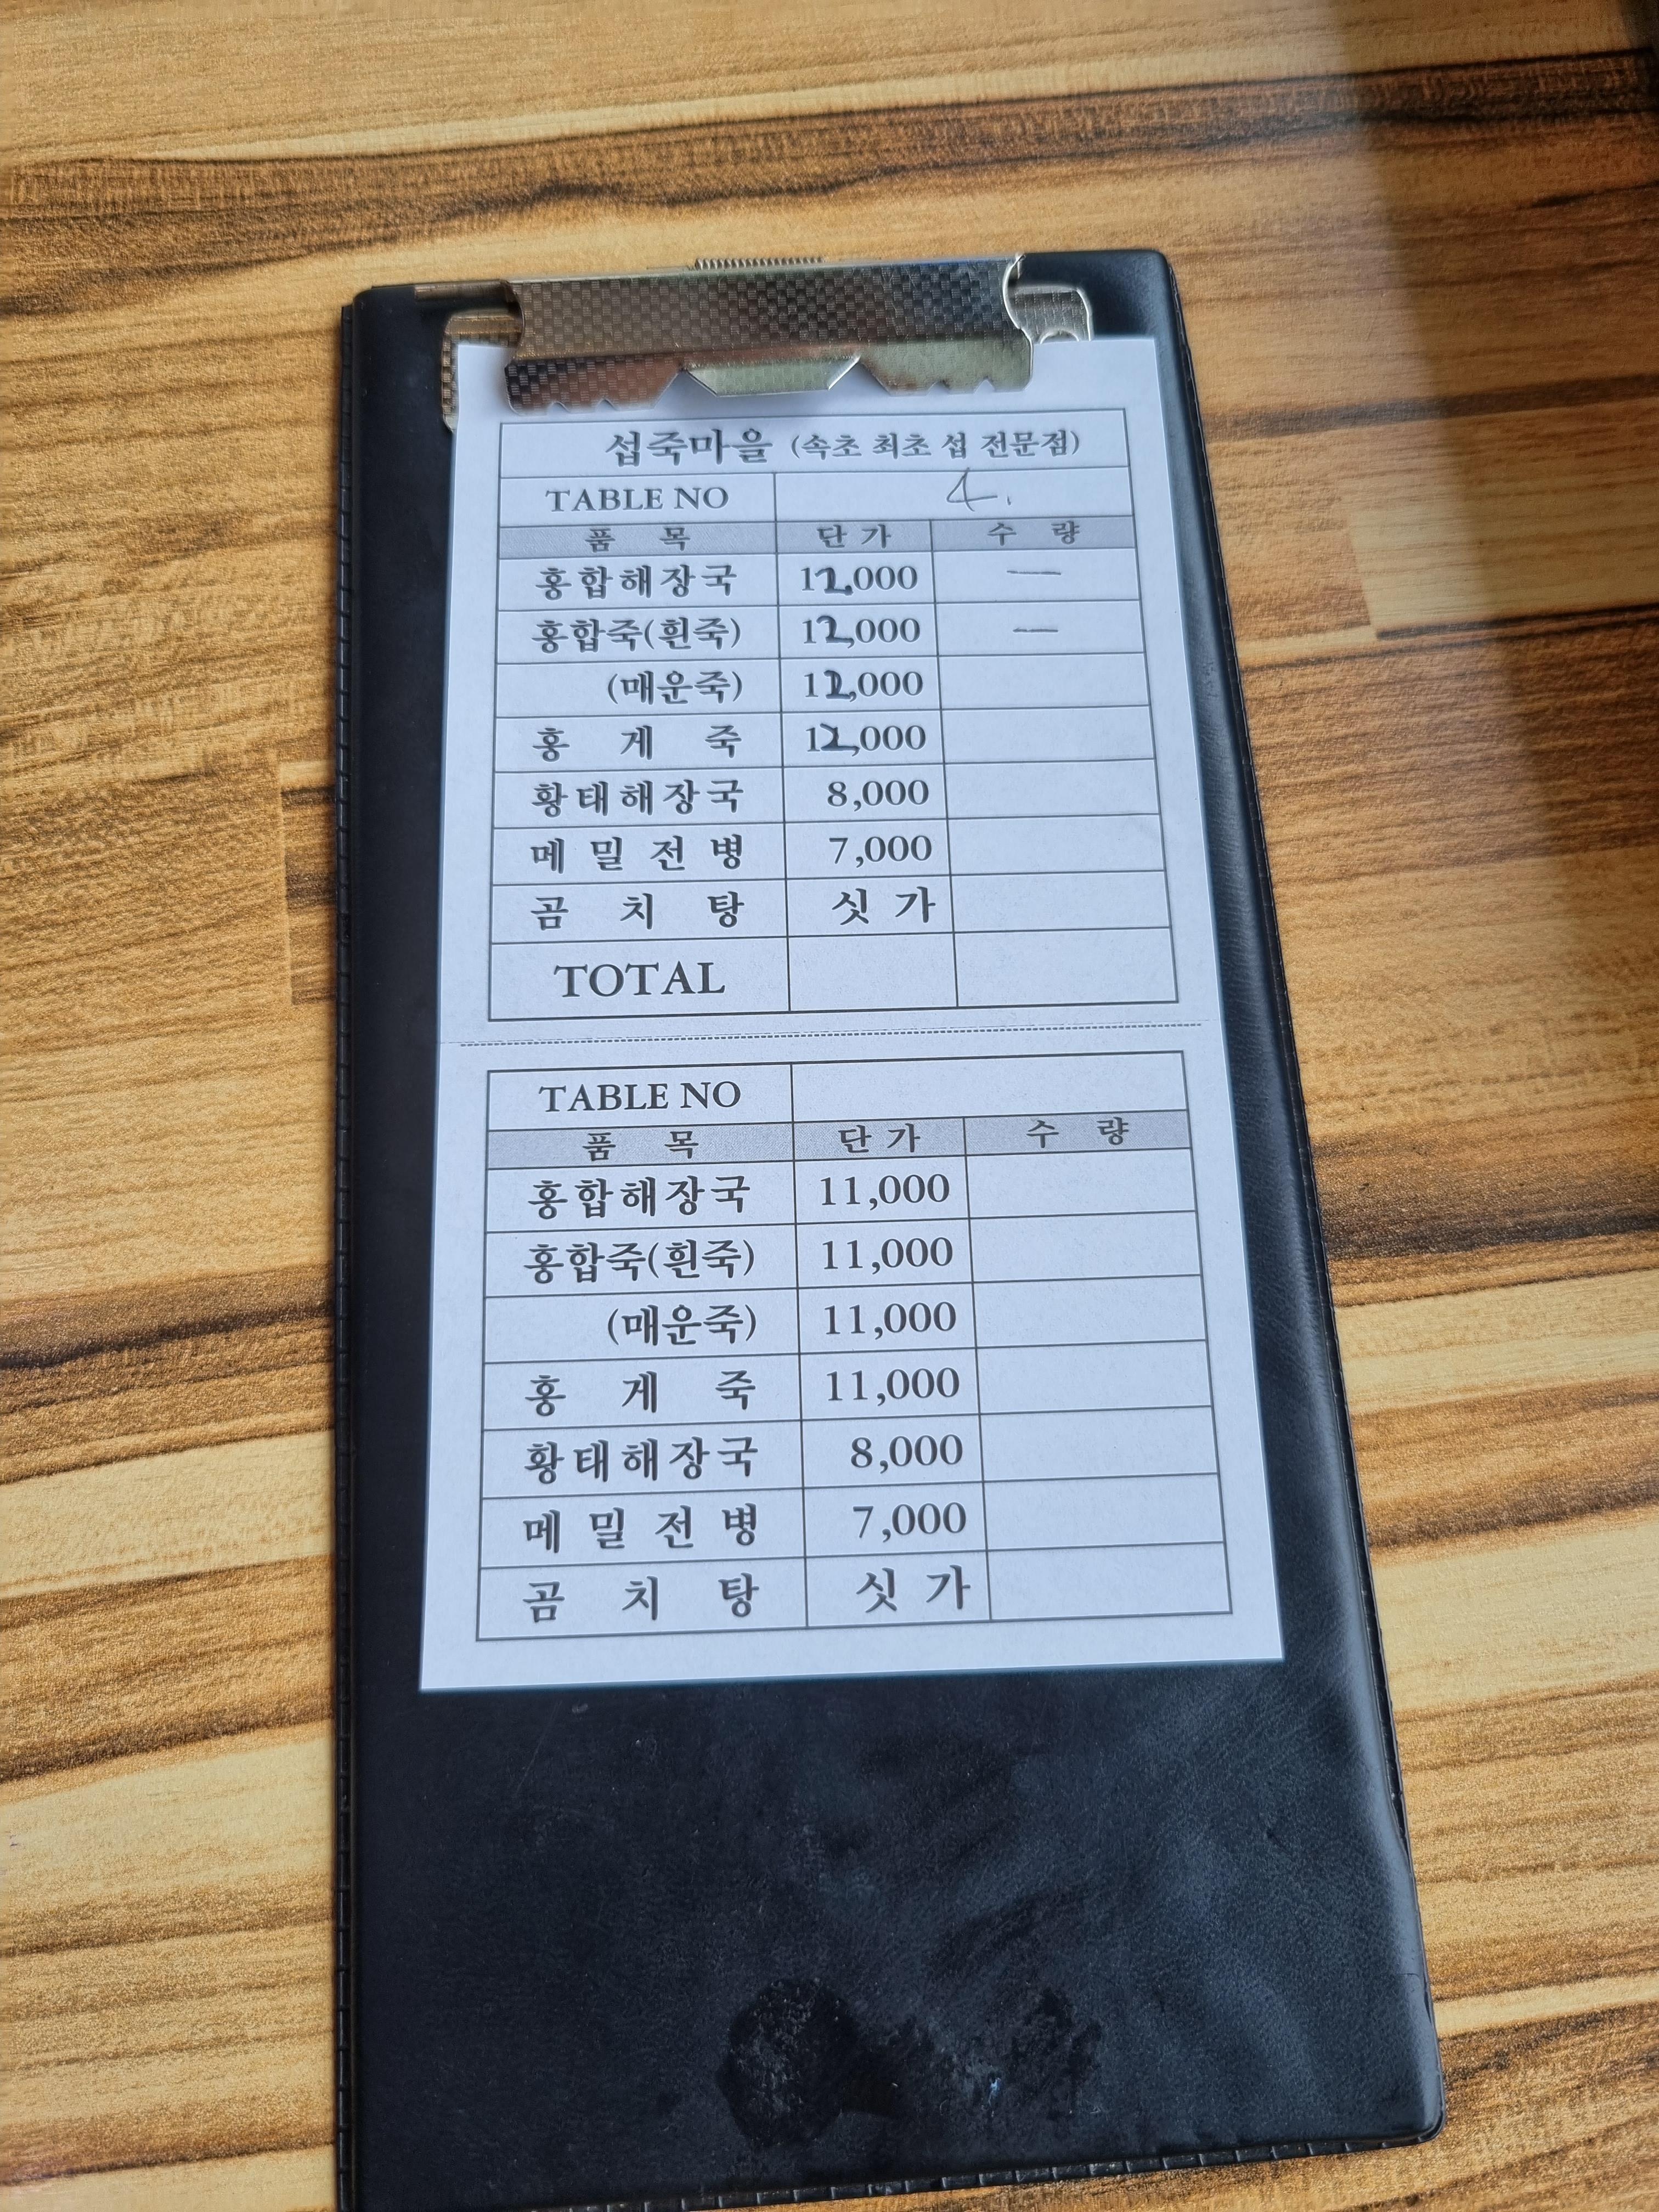 섭죽마을 (속초 최초 섭 전문점)
TABLE NO 4.
품 목 단 가 수 량
홍합해장국 12,000 一
홍합죽(흰죽) 12,000 一
(매운죽) 12,000
홍 게 죽 12,000
황태해장국 8,000
메 밀 전 병 7,000
곰 치 탕 싯 가
TOTAL
TABLE NO
품 목 단 가 수 량
홍합해장국 11,000
홍합죽(흰죽) 11,000
(매운죽) 11,000
홍 게 죽 11,000
황태해장국 8,000
메 밀 전 병 7,000
곰 치 탕 싯 가